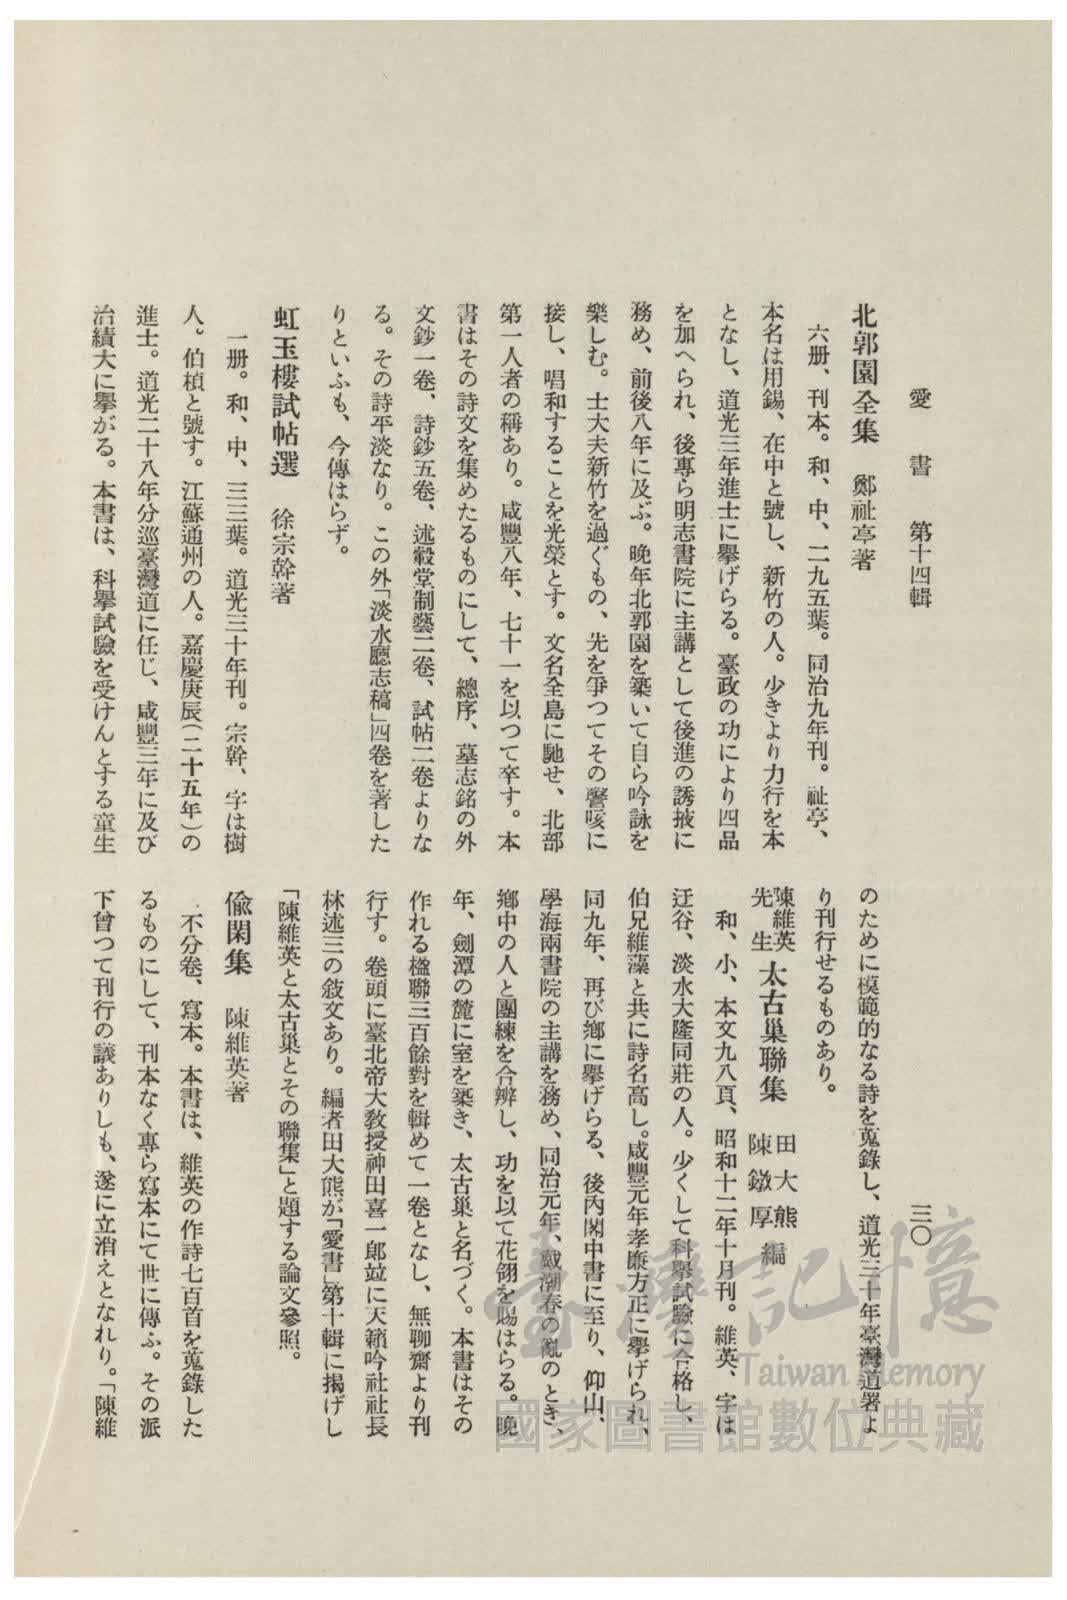 愛書 第十四輯
三〇
北郭園全集 鄭祉亭著
六册、刊本。和、中、二九五葉。同治九年刊。祉亭、
本名は用錫、在中と號し、新竹の人。少きより力行を本
となし、道光三年進士に擧げらる。臺政の功により四品
を加へられ、後專ら明志書院に主講として後進の誘掖に
務め、前後八年に及ぶ。晚年北郭園を築いて自ら吟詠を
樂しむ。士大夫新竹を過ぐもの、先を爭つてその謦咳に
接し、唱和することを光榮とす。文名全島に馳せ、北部
第一人者の稱あり。咸豐八年、七十一を以つて卒す。本
書はその詩文を集めたるものにして、總序、墓志銘の外
文鈔一卷、詩鈔五卷、述穀堂制藝二卷、試帖二卷よりな
る。その詩平淡なり。この外「淡水廳志稿」四卷を著した
りといふも、今傳はらず。
虹玉樓試帖選 徐宗幹著
一册。和、中、三三葉。道光三十年刊。宗幹、字は樹
人。伯楨と號す。江蘇通州の人。嘉慶庚辰(二十五年)の
進士。道光二十八年分巡臺灣道に任じ、咸豐三年に及び
治績大に擧がる。本書は、科擧試驗を受けんとする童生
のために模範的なる詩を蒐錄し、道光三十年臺灣道署よ
り刊行せるものあり。
陳維英先生 太古巢聯集 田大熊 陳鐓厚 編
和、小、本文九八頁、昭和十二年十月刊。維英、字は
迂谷、淡水大隆同莊の人。少くして科擧試驗に合格し、
伯兄維藻と共に詩名高し。咸豐元年孝廉方正に擧げられ、
同九年、再び鄕に擧げらる、後內閣中書に至り、仰山、
學海兩書院の主講を務め、同治元年、戴潮春の亂のとき、
鄕中の人と團練を合辦し、功を以て花翎を賜はらる。晚
年、劍潭の麓に室を築き、太古巢と名づく。本書はその
作れる楹聯三百餘對を輯めて一卷となし、無聊齋より刊
行す。卷頭に臺北帝大敎授神田喜一郞竝に天籟吟社社長
林述三の敍文あり。編者田大熊が「愛書」第十輯に揭げし
「陳維英と太古巢とその聯集」と題する論文參照。
偸閑集 陳維英著
不分卷、寫本。本書は、維英の作詩七百首を蒐錄した
るものにして、刊本なく專ら寫本にて世に傳ふ。その派
下曾つて刊行の議ありしも、遂に立消えとなれり。「陳維
臺灣記憶
Taiwan Memory
國家圖書館數位典藏